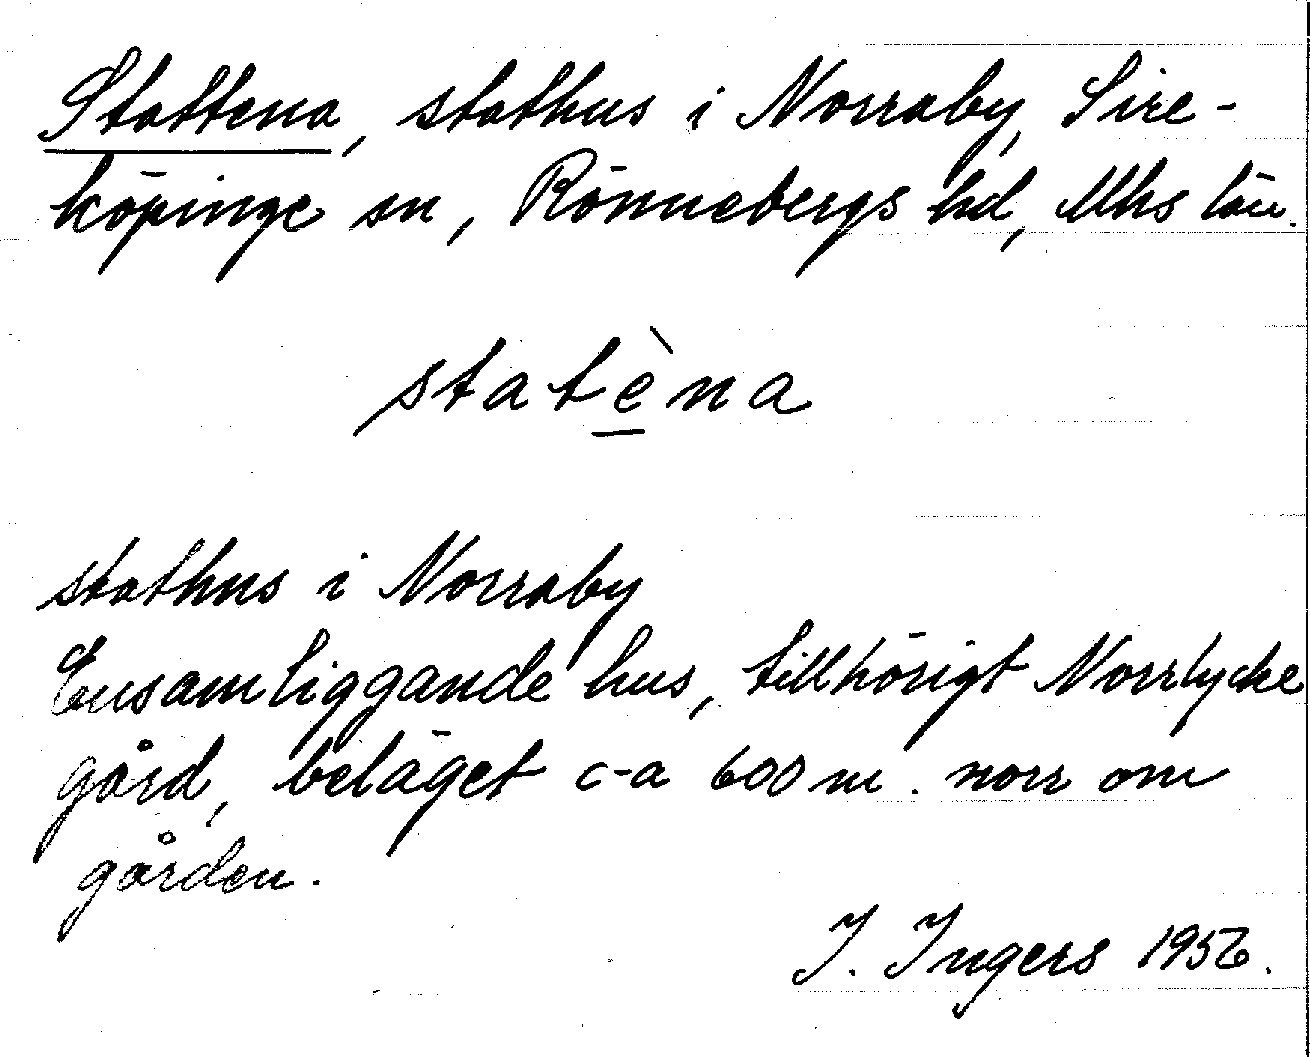 Stattena, stathus i Norraby, Sire-
köpinge sn, Rönnebergs hd, Mhs län.
statèna
stathus i Norraby
Ensamliggande hus, tillhörigt Norrlycke
gård, beläget c-a 600 m. norr om
gården.
I. Ingers 1956.